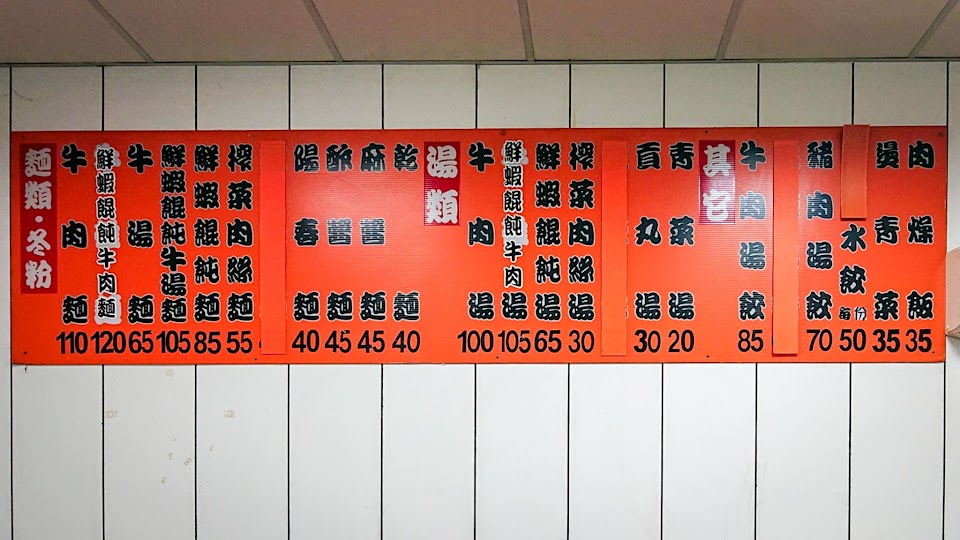 麵類·冬粉
牛肉麵 110
鮮蝦餛飩牛肉麵 120
牛湯麵 65
鮮蝦餛飩牛湯麵 105
鮮蝦餛飩麵 85
榨菜肉絲麵 55
陽春麵 40
酢醬麵 45
麻醬麵 45
乾麵 40
湯類
牛肉湯 100
鮮蝦餛飩牛肉湯 105
鮮蝦餛飩湯 65
榨菜肉絲湯 30
貢丸湯 30
青菜湯 20
其它
牛肉湯餃 85
豬肉湯餃 70
水餃每份 50
燙青菜 35
肉燥飯 35